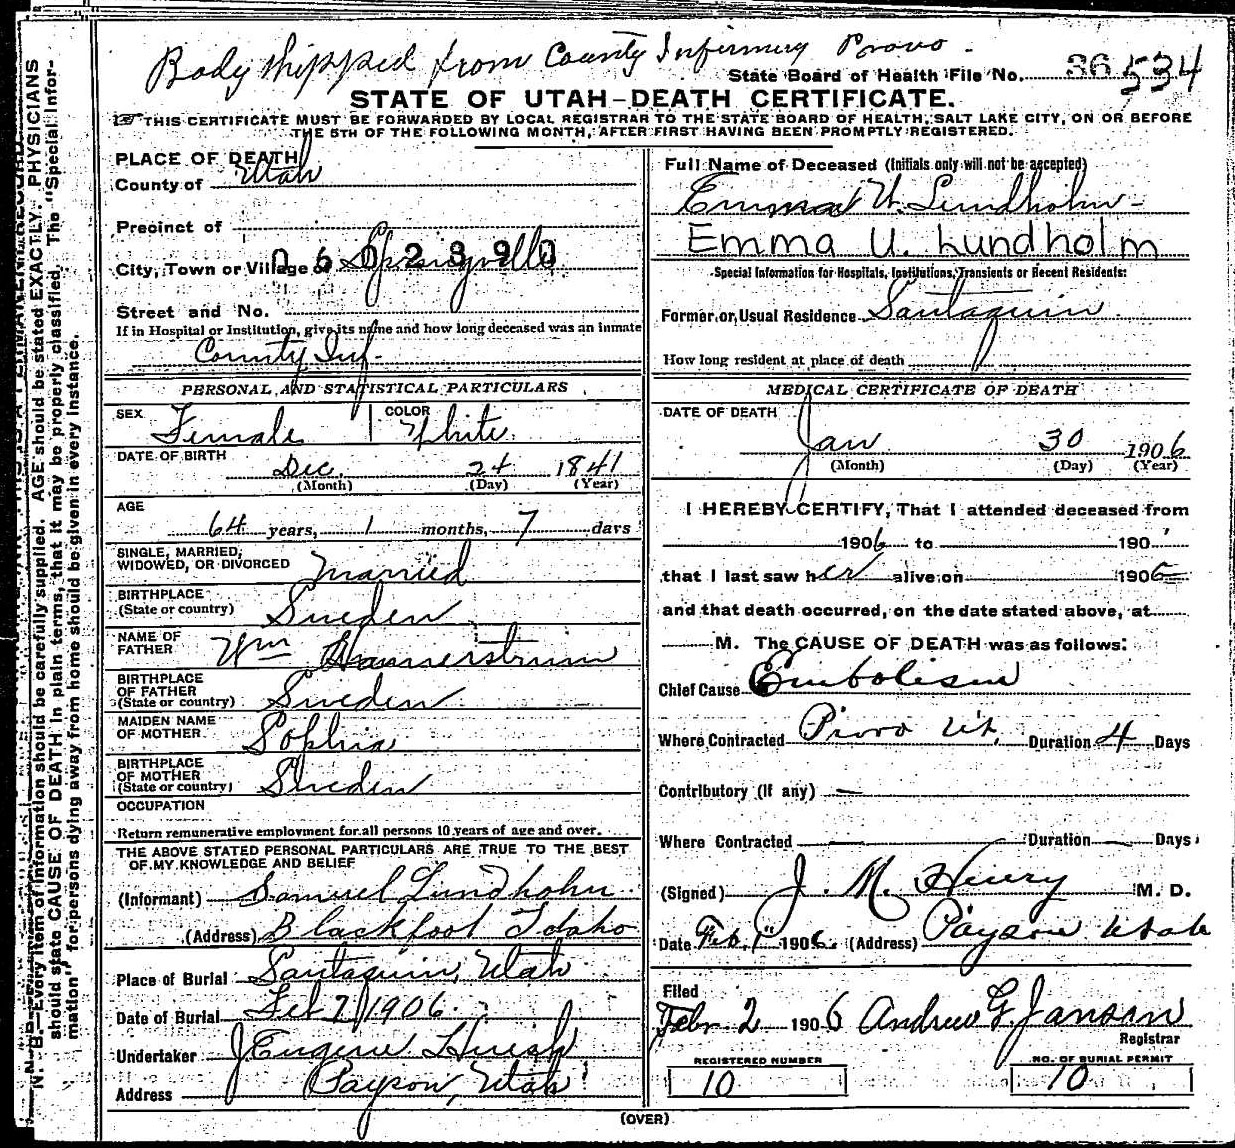 Body shipped from County Infirmary Provo -
State Board of Health File No. 36 534
STATE OF UTAH-DEATH CERTIFICATE.
THIS CERTIFICATE MUST BE FORWARDED BY LOCAL REGISTRAR TO THE STATE BOARD OF HEALTH, SALT LAKE CITY, ON OR BEFORE
THE 5TH OF THE FOLLOWING MONTH, AFTER FIRST HAVING BEEN PROMPTLY REGISTERED.
PLACE OF DEATH
County of Utah
Precinct of
City, Town or Village of Springville
0602390
Street and No.
If in Hospital or Institution, give its name and how long deceased was an inmate
County Inf-
Full Name of Deceased (Initials only will not be accepted)
Emma U. Lundholm-
Emma U. Lundholm
Special Information for Hospitals, Institutions, Transients or Recent Residents:
Former or Usual Residence Santaquin
How long resident at place of death
PERSONAL AND STATISTICAL PARTICULARS
SEX Female COLOR White
DATE OF BIRTH Dec. 24 1841
(Month) (Day) (Year)
AGE
64 years, 1 months, 7 days
SINGLE, MARRIED,
WIDOWED, OR DIVORCED Married
BIRTHPLACE
(State or country) Sweden
NAME OF
FATHER Wm
BIRTHPLACE
OF FATHER
(State or country) Sweden
MAIDEN NAME
OF MOTHER Sophia
BIRTHPLACE
OF MOTHER
(State or country) Sweden
OCCUPATION
Return remunerative employment for all persons 10 years of age and over.
THE ABOVE STATED PERSONAL PARTICULARS ARE TRUE TO THE BEST
OF MY KNOWLEDGE AND BELIEF
(Informant) Samuel Lundholm
(Address) Blackfoot Idaho
Place of Burial Santaquin, Utah
Date of Burial Feb 2 1906.
Undertaker J Eugene
Address Payson, Utah
MEDICAL CERTIFICATE OF DEATH
DATE OF DEATH
Jan 30 1906
(Month) (Day) (Year)
I HEREBY CERTIFY, That I attended deceased from
1906 to 190
that I last saw her alive on 1906
and that death occurred, on the date stated above, at
M. The CAUSE OF DEATH was as follows:
Chief Cause Embolism
Where Contracted Provo Ut, Duration 4 Days
Contributory (if any) —
Where Contracted — Duration — Days
(Signed) J. M. M. D.
Date Feb. 1" 1906. (Address) Payson Utah
Filed
Febr 2 1906 Andrew G. Janson
Registrar
REGISTERED NUMBER
10
NO. OF BURIAL PERMIT
10
(OVER)
N. B.—Every item of information should be carefully supplied. AGE should be stated EXACTLY. PHYSICIANS
should state CAUSE OF DEATH in plain terms, that it may be properly classified. The "Special Infor-
mation" for persons dying away from home should be given in every instance.